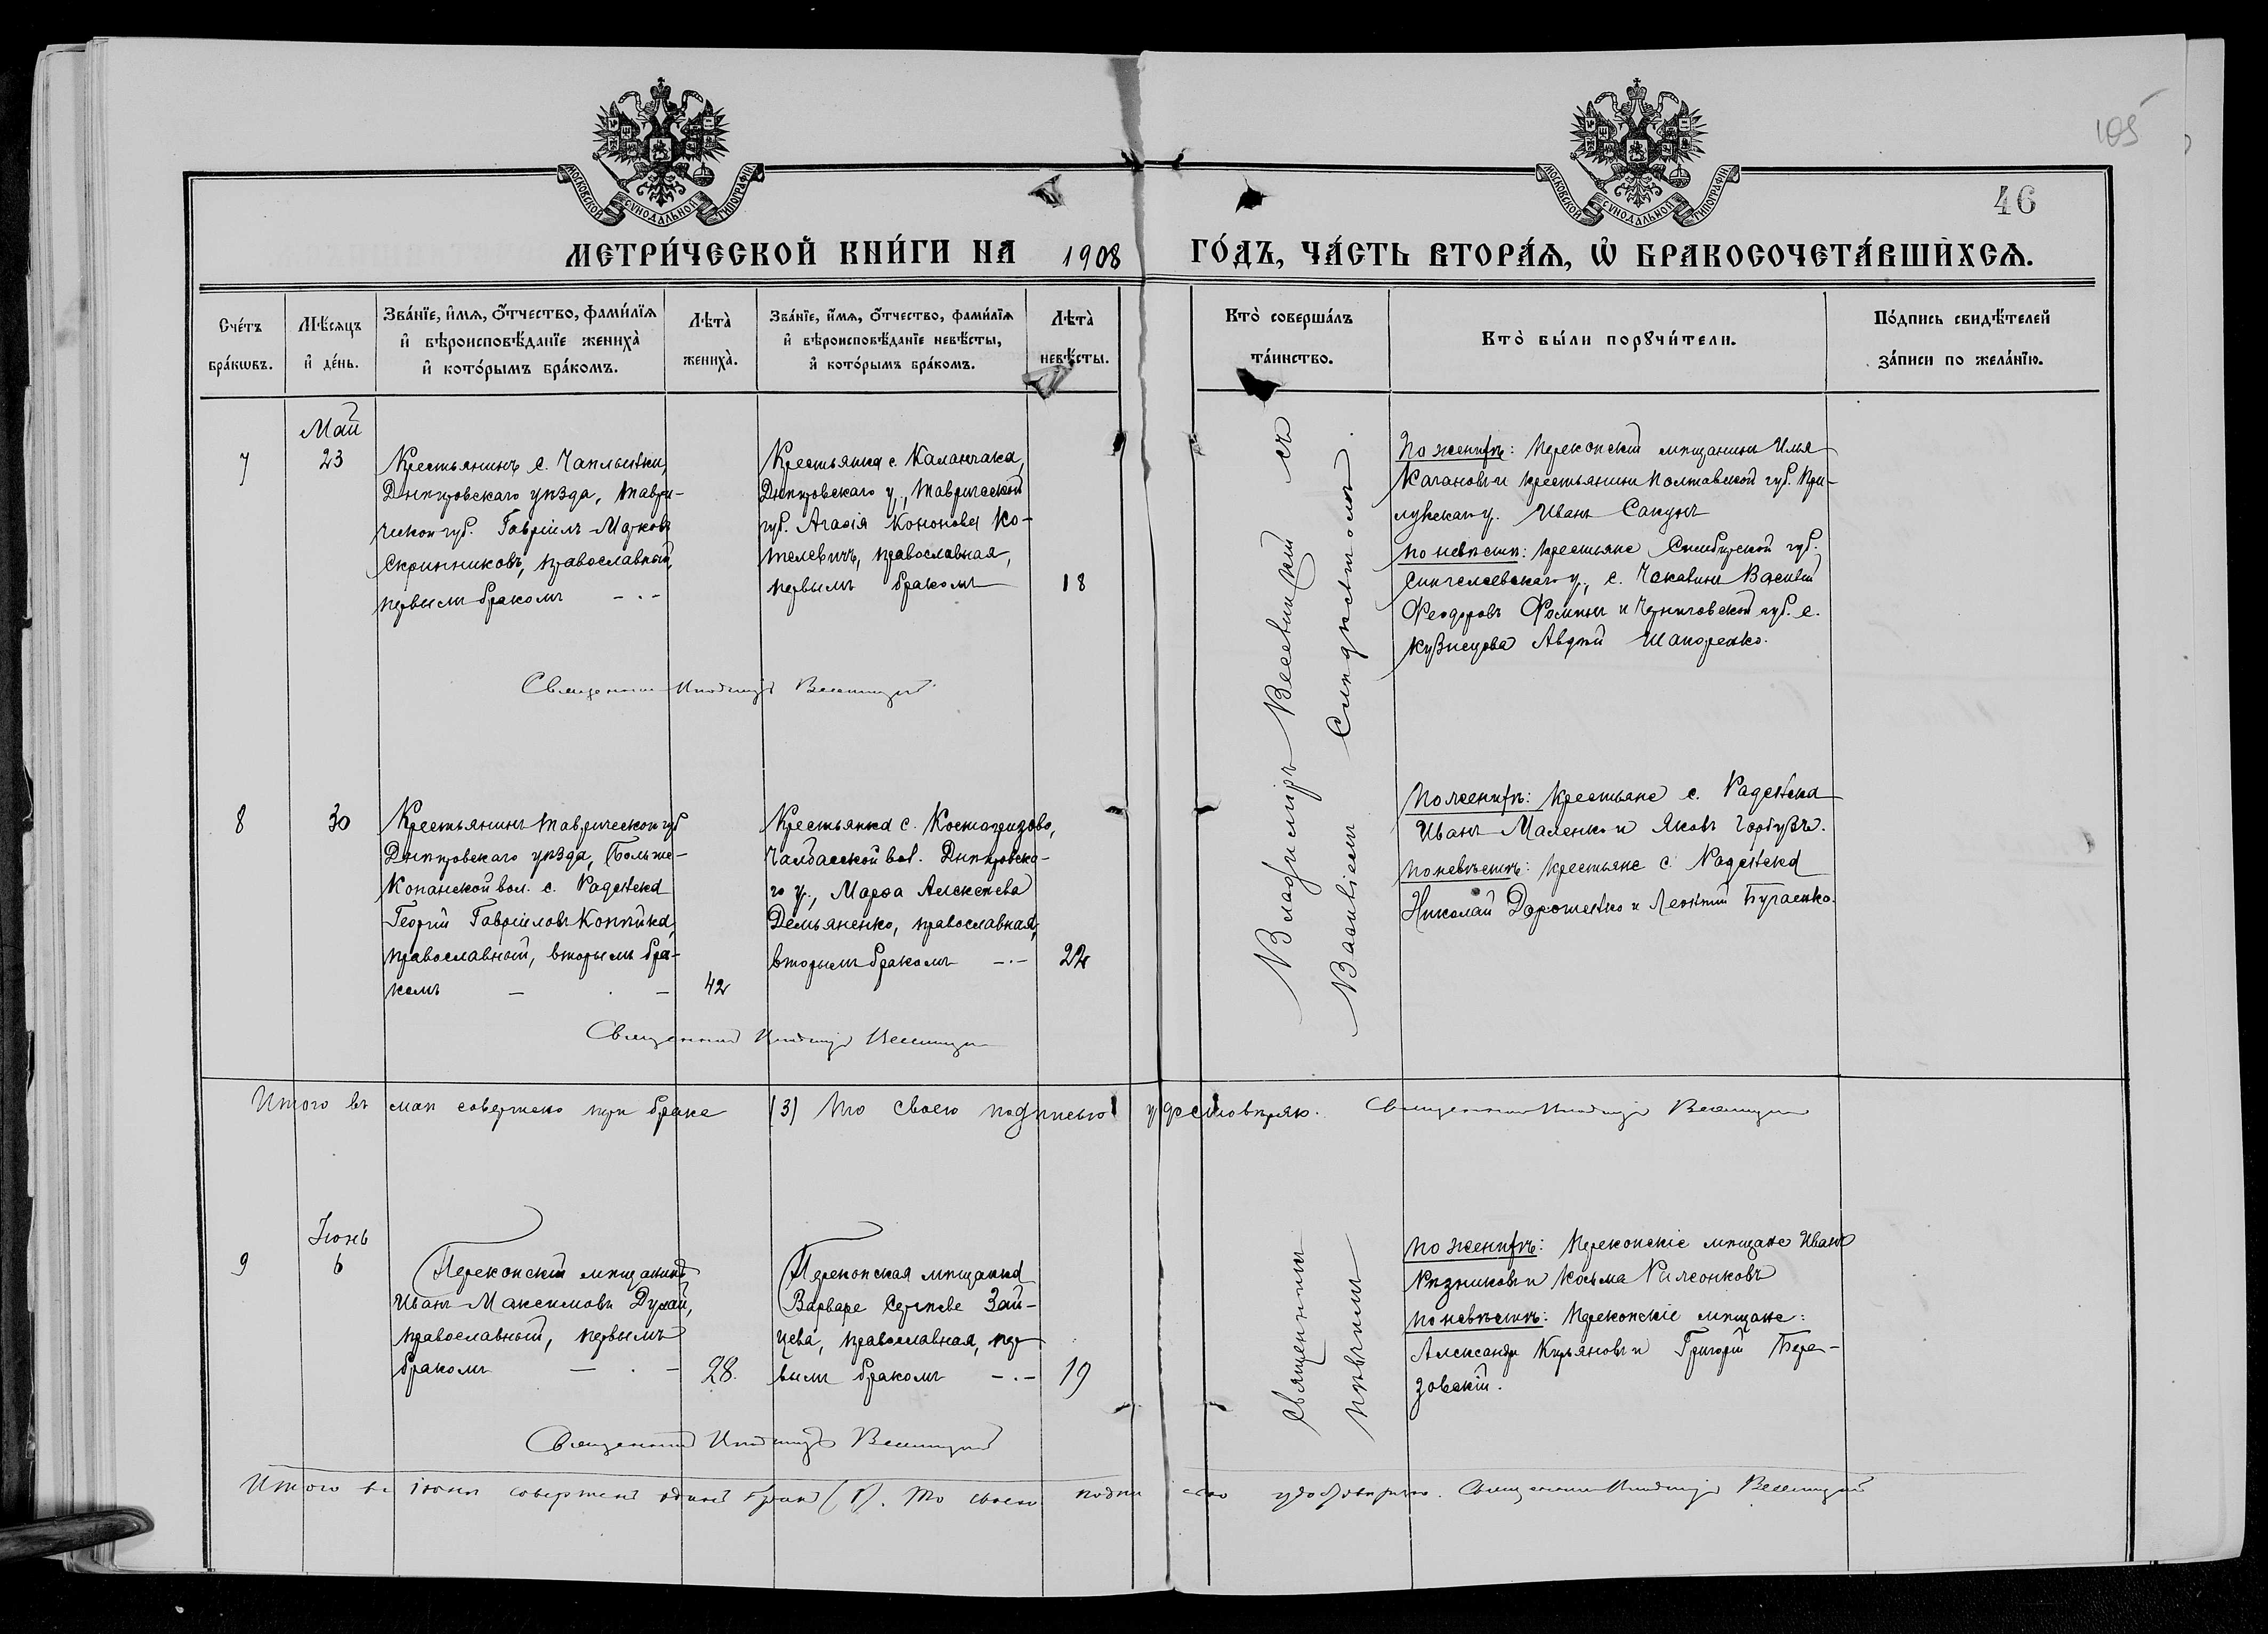 105
46
МОСКОВСКОЙ СѴНОДАЛЬНОЙ ТИПОГРАФІИ
МОСКОВСКОЙ СѴНОДАЛЬНОЙ ТИПОГРАФІИ
МЕТРИ́ЧЕСКОЙ КНИ́ГИ НА 1908 ГО́ДЪ, ЧА́СТЬ ВТОРА́Ѧ, Ѡ҆ БРАКОСОЧЕТА́ВШИХСѦ.
Сче́тъ бра́кѡвъ.
Мѣ́сѧцъ и҆ де́нь.
Зва́нїе, и҆́мѧ, ѻ҆́тчество, фами́лїѧ и҆ вѣроисповѣ́данїе жениха̀ и҆ кото́рымъ бра́комъ.
Лѣта̀ жениха̀.
Зва́нїе, и҆́мѧ, ѻ҆́тчество, фами́лїѧ и҆ вѣроисповѣ́данїе невѣ́сты, и҆ кото́рымъ бра́комъ.
Лѣта̀ невѣ́сты.
Кто̀ соверша́лъ та́инство.
Кто̀ бы́ли порꙋчи́тели.
По́дпись свидѣ́телей за́писи по жела́нїю.
7
Май
23
Крестьянинъ с. Чаплынки,
Днѣпровскаго уѣзда, Таври-
ческой губ. Гавріилъ Марковъ
Скринниковъ, православный,
первымъ бракомъ
Крестьянка с. Каланчака,
Днѣпровскаго у., Таврической
губ. Агаѳія Кононова Ко-
телевичъ, православная,
первымъ бракомъ
18
По женихѣ: Перекопскій мѣщанинъ Илья
Кагановъ и крестьянинъ Полтавской губ. При-
лукскаго у. Иванъ Сакунъ
по невѣстѣ: крестьяне Симбирской губ.
Сингелеевскаго у., с. Чекалина Василій
Феодоровъ Фоминъ и Черниговской губ. с.
Кузнецова Авдѣй Шапоренко.
Священникъ Владиміръ Веселицкій
8
30
Крестьянинъ Таврической губ
Днѣпровскаго уѣзда, Больше-
Копанской вол. с. Раденска
Георгій Гавріиловъ Копѣйка,
православный, вторымъ бра-
комъ
42
Крестьянка с. Костогризово,
Чалбасской вол. Днѣпровска-
го у., Марѳа Алексѣева
Демьяненко, православная,
вторымъ бракомъ
22
По женихѣ: крестьяне с. Раденска
Иванъ Маленко и Яковъ Горбузъ.
По невѣстѣ: крестьяне с. Раденска
Николай Дорошенко и Леонтій Бугаенко.
Священникъ Владиміръ Веселицкій
Итого въ маѣ совершено три брака (3) Что своею подписью удостовѣряю. Священникъ Владиміръ Веселицкій
9
Іюнь
6
Перекопскій мѣщанинъ
Иванъ Максимовъ Дунай,
православный, первымъ
бракомъ
28.
Перекопская мѣщанка
Варвара Сергѣева Зай-
цева, православная, пер
вымъ бракомъ
19
По женихѣ: Перекопскіе мѣщане Иванъ
Рѣзниковъ и Косьма
По невѣстѣ: Перекопскіе мѣщане:
Александръ Кирьяновъ и Григорій Бере-
зовскій.
Священникъ Владиміръ Веселицкій съ
Псаломщикомъ Василіемъ
Священникъ Владиміръ Веселицкій
Итого въ іюнѣ совершенъ одинъ бракъ (1). Что своею подписью удостовѣряю. Священникъ Владиміръ Веселицкій